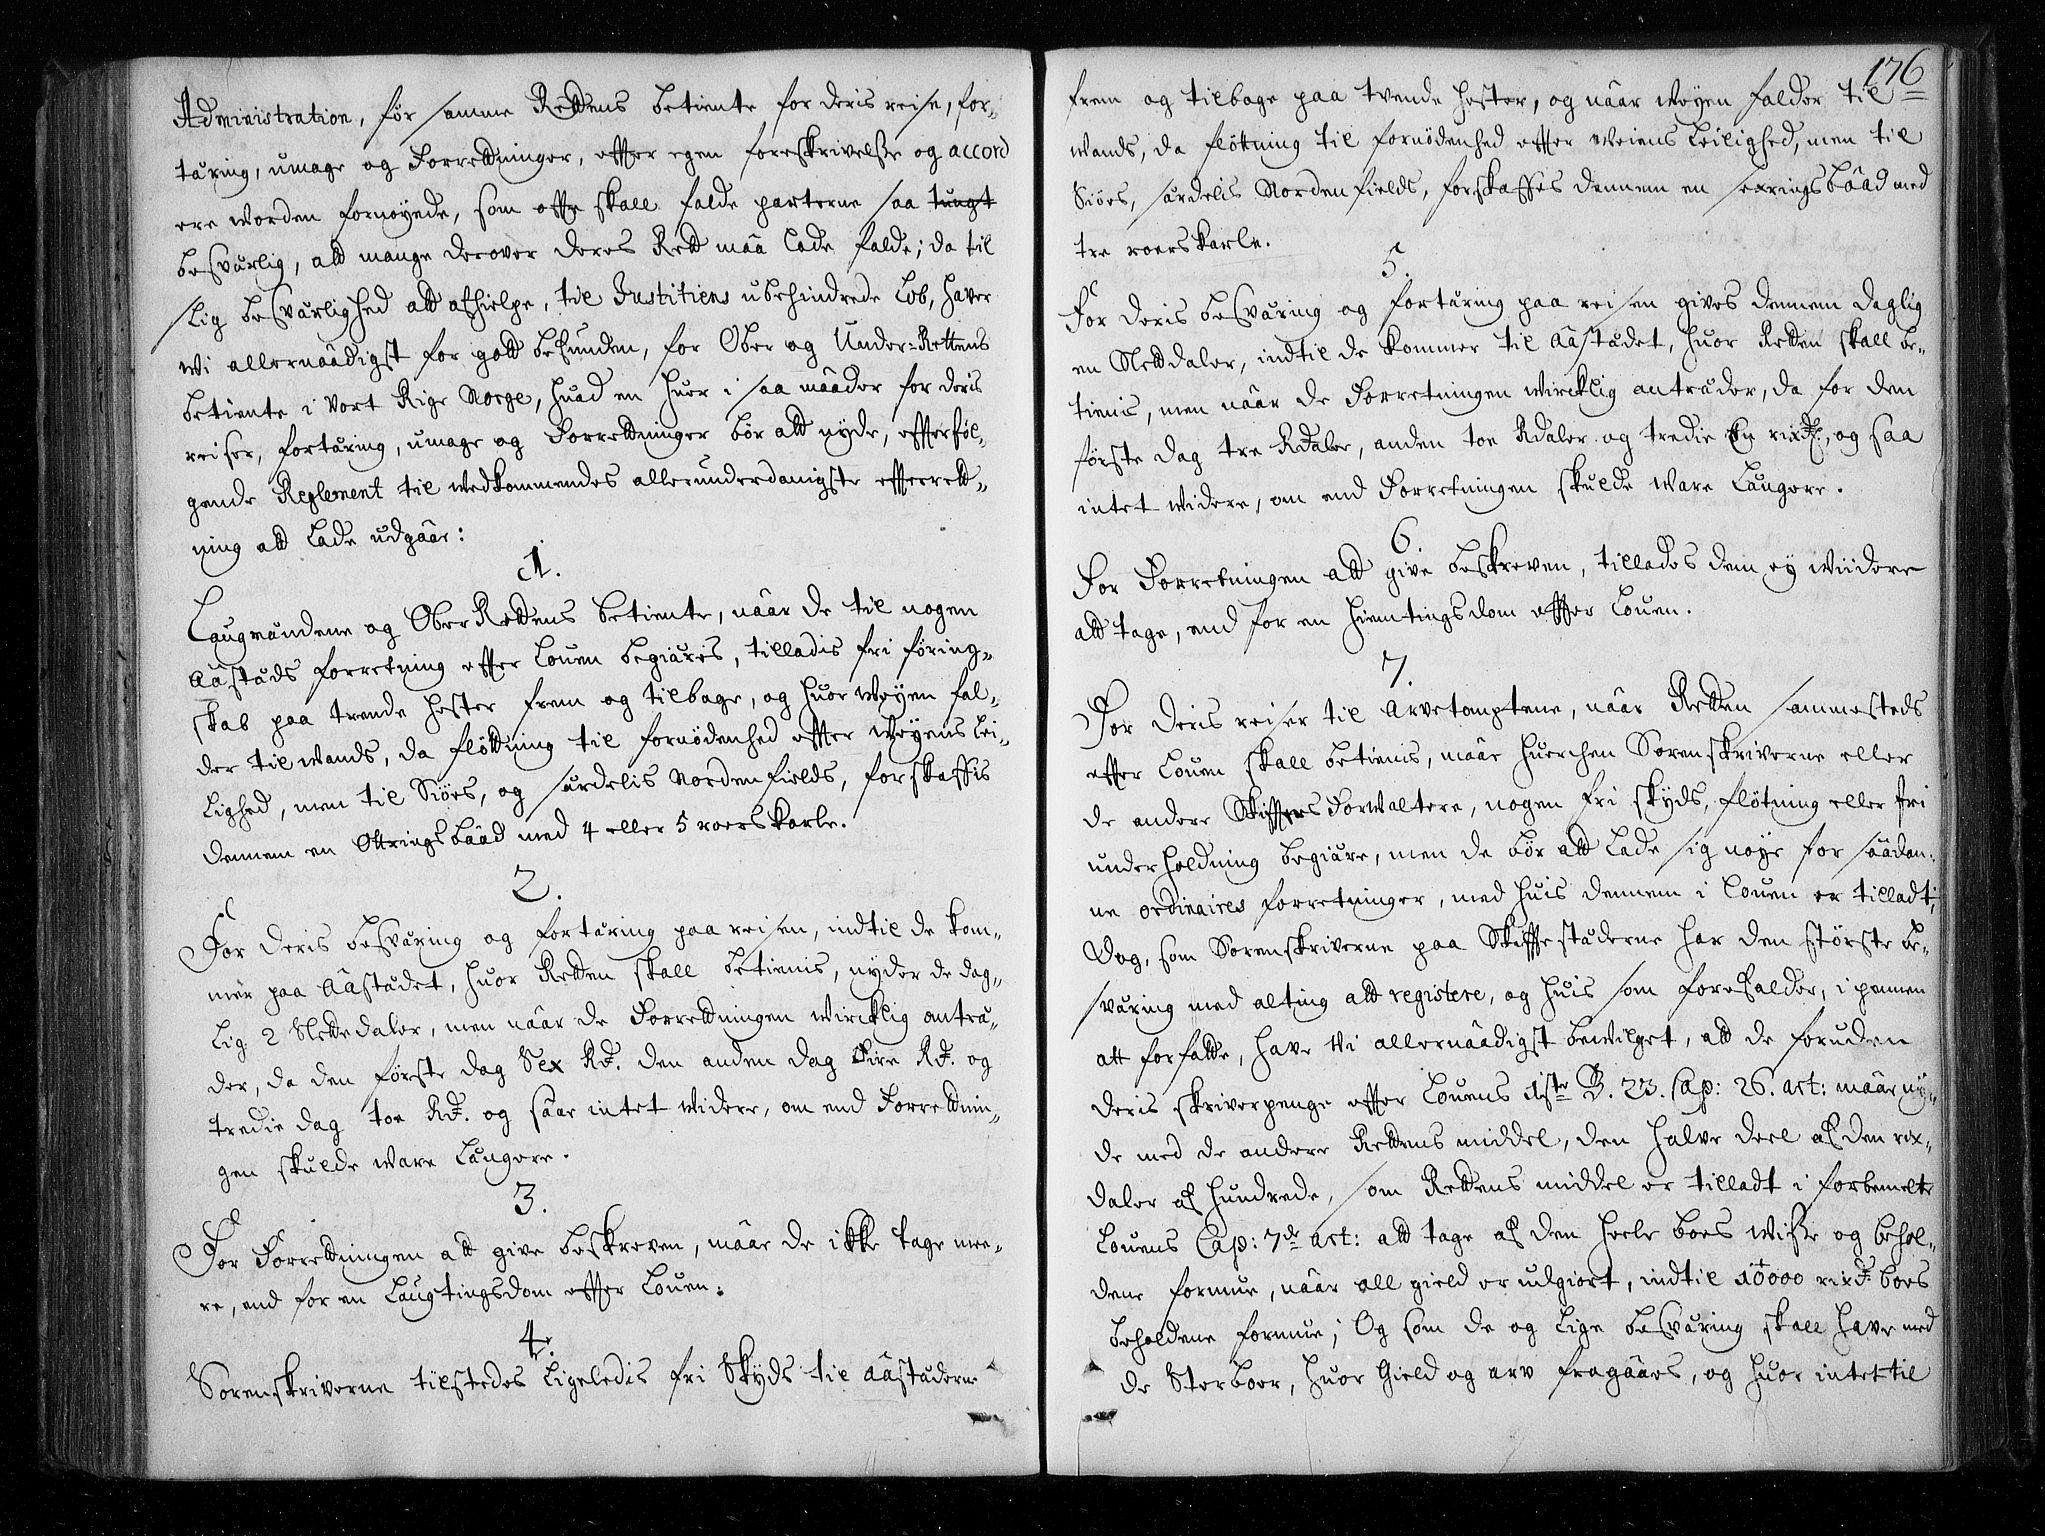 Administration, før samme Rettens betiente for deris reise, for-
tæring, umage og Forretninger, effter egen foreskrivelsse og accord
ere worden fornøyede, som offte skall falde parterne saa tungt
besværlig, att mange derover deres Rett måa lade falde; da til
slig besværlighed att afhielpe, til Justitiens ubehindrede Løb, haver
wi allernåadigst for gott befunden, for Ober og Under-Rettens
betiente i Vort Rige Norge, huad en huer i saa måader for deris
reiser, fortæring, umage og Forrettninger bør att nyde, effterføl-
gende Reglement til wedkommendes allerunderdanigste effterrett-
ning att lade udgåar:
1.
Laugmændene og OberRettens betiente, nåar de til nogen
Aastæds forretning effter Louen begiæres, tilladis fri føring-
skab paa tvende hester frem og tilbage, og huor Weyen fal-
der til wands, da fløttning til fornødenhed effter Weyens lei-
lighed, men til Siøes, og særdelis Norden fields, forskaffis
dennem en Ottringsbåad med 4 eller 5 roerskarle.
2.
For deris besværing og fortæring paa reisen, indtil de kom-
mer paa Aastædet, huor Retten skall betienis, nyder de dag-
lig 2 Slettedaler, men nåar de Forrettningen wircklig antræ-
der, da den første dag Sex Rd. den anden dag Fire Rd. og
tredie dag toe Rd. og såar intet widere, om end Forrettnin-
gen skulde ware længere.
3.
For Forrettningen att give beskreven, måae de ikke tage mee-
re, end for en Laugtingsdom effter Louen.
4.
Sorenskriverne tilstedes ligeledis fri Skyds til Aastæderne
176
frem og tilbage paa tvende hester, og nåar Weyen falder til
wands, da fløttning til fornødenhed effter Weiens leilighed, men til
Siøes, særdelis Norden fields, forskaffes dennem en sexringsbåad med
tre roerskarle.
5.
For deris besværing og fortæring paa reisen gives dennem daglig
en Slettdaler, indtil de kommer til Aastædet, huor Retten skall be-
tienis, men nåar de Forretningen wircklig antræder, da for den
første dag tre Rdaler, anden toe Rdaler og tredie En rixd., og saa
intet widere, om end Forretningen skulde ware længere.
6.
For Forretningen att give beskreven, tillades dem ey wiidere
att tage, end for en hiemtingsdom effter Louen.
7.
For deris reiser til Arvetompterne, nåar Retten sammesteds
effter Louen skall betienis, måae huerchen Sorenskriverne eller
de andere Skifftes Forwaltere, nogen fri skyds, fløtning eller fri
underholdning begiære, men de bør att lade sig nøye for såadan-
ne ordinaires forretninger, med huis dennem i Louen er tilladt;
Dog, som Sorenskriverne paa Skifftestæderne har den største be-
sværing med alting att registere, og huis som forefalder, i pennen
att forfatte, have Wi allernåadigst bewilget, att de foruden
deris skriverpenge effter Louens 5te B. 23. Cap: 26. art: måae ny-
de med de andere Rettens middel, den halve deel af den rix-
daler af hundrede, som Rettens middel er tilladt i forbemelte
Louens Cap: 7de art: att tage af den heele boes wisse og behol-
dene formue, nåar all gield er udgiort, indtil 10000 rixd: boes
beholdene formue; Og som de og lige besværing skall have med
de Sterboer, huor Gield og arv fragåaes, og huor intet til